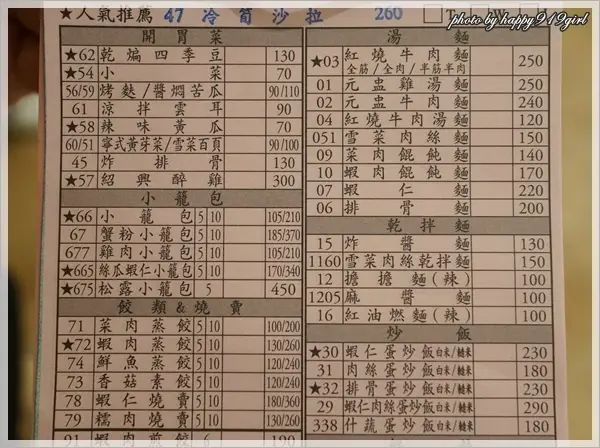 photo by happy919girl
★人氣推薦 47 冷筍沙拉 260
開胃菜
★62 乾煸四季豆 130
★54 小菜 70
56/59 烤麩/醬燜苦瓜 90/110
61 涼拌雲耳 90
★58 辣味黃瓜 70
60/51 寧式黃芽菜/雪菜百頁 90/100
45 炸排骨 130
★57 紹興醉雞 300
小籠包
★66 小籠包 5 10 105/210
67 蟹粉小籠包 5 10 185/370
677 雞肉小籠包 5 10 105/210
★665 絲瓜蝦仁小籠包 5 10 170/340
★675 松露小籠包 5 450
餃類&燒賣
71 菜肉蒸餃 5 10 100/200
★72 蝦肉蒸餃 5 10 130/260
74 鮮魚蒸餃 5 10 120/240
73 香菇素餃 5 10 120/240
78 蝦仁燒賣 5 10 180/360
79 糯肉燒賣 5 10 130/260
91 蝦肉煎餃 6 190
湯麵
★03 紅燒牛肉麵 250
全筋/全肉/半筋半肉
01 元盅雞湯麵 250
02 元盅牛肉麵 240
04 紅燒牛肉湯麵 120
051 雪菜肉絲麵 150
09 菜肉餛飩麵 140
10 蝦肉餛飩麵 170
07 蝦仁麵 220
06 排骨麵 200
乾拌麵
15 炸醬麵 130
1160 雪菜肉絲乾拌麵 150
12 擔擔麵(辣) 100
1205 麻醬麵 100
16 紅油燃麵(辣) 100
炒飯
★30 蝦仁蛋炒飯白米/糙米 230
31 肉絲蛋炒飯白米/糙米 180
★32 排骨蛋炒飯白米/糙米 230
29 蝦仁肉絲蛋炒飯白米/糙米 290
338 什蔬蛋炒飯白米/糙米 180